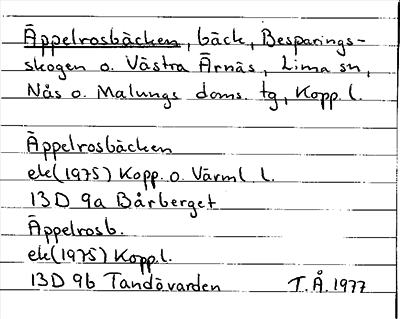 Äppelrosbäcken, bäck, Besparings-
skogen o. Västra Ärnäs, Lima sn,
Nås o. Malungs doms. tg, Kopp. l.
Äppelrosbäcken
ek (1975) Kopp. o. Värml. l.
13D 9a Bårberget
Äppelrosb.
ek (1975) Kopp.l.
13D 9b Tandövarden T.Å. 1977